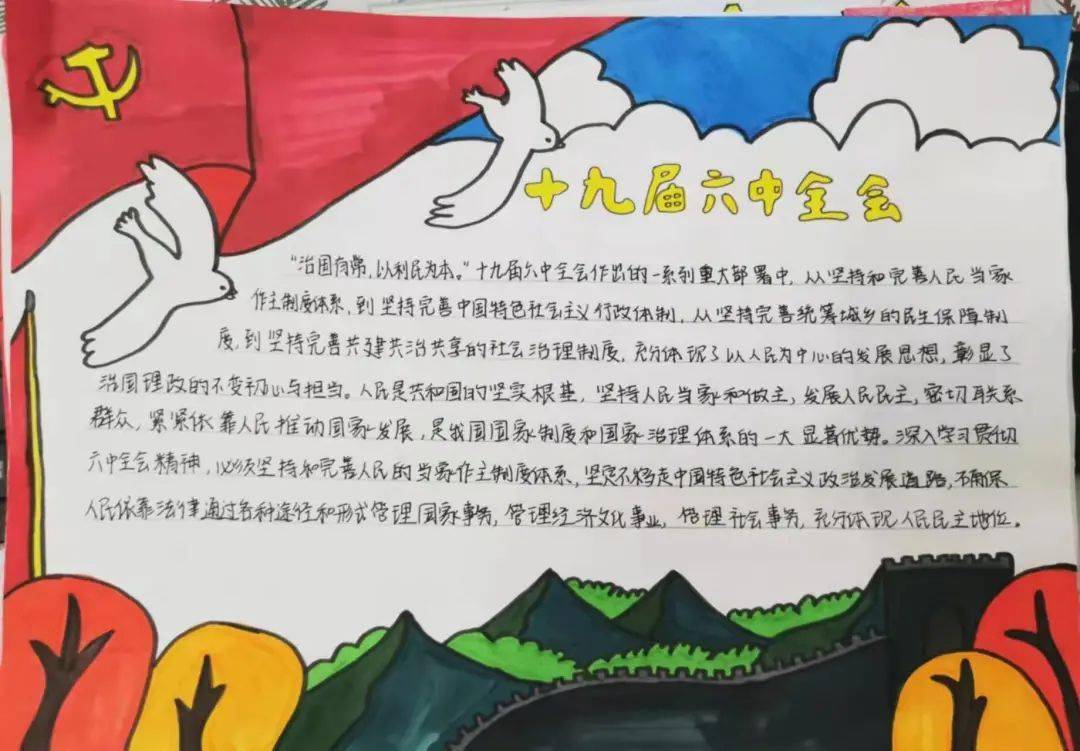 十九届六中全会
“治国有常，以利民为本。”十九届六中全会作出的一系列重大部署中，从坚持和完善人民当家
作主制度体系，到坚持完善中国特色社会主义行政体制，从坚持完善统筹城乡的民生保障制
度，到坚持完善共建共治共享的社会治理制度，充分体现了以人民为中心的发展思想，彰显了
治国理政的不变初心与担当。人民是共和国的坚实根基，坚持人民当家和做主，发展人民民主，密切联系
群众，紧紧依靠人民推动国家发展，是我国国家制度和国家治理体系的一大显著优势。深入学习贯彻
六中全会精神，必须坚持和完善人民的当家作主制度体系，坚定不移走中国特色社会主义政治发展道路，不确保
人民依靠法律通过各种途径和形式管理国家事务，管理经济文化事业，管理社会事务，充分体现人民民主地位。